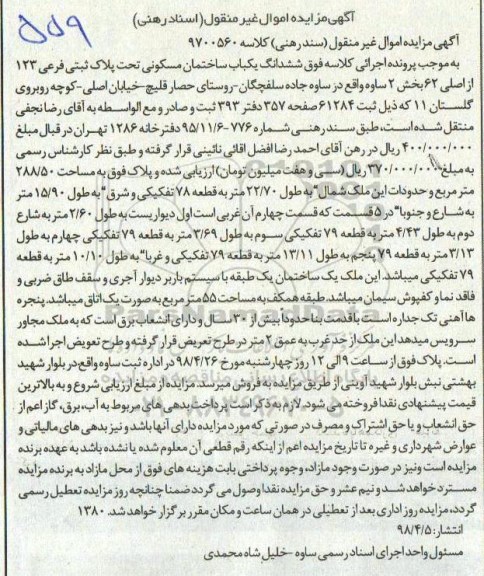 آگهی مزایده اموال غیر منقول (اسناد رهنی)
۵۵۹
آگهی مزایده اموال غیر منقول (سند رهنی) کلاسه ۹۷۰۰۵۶۰
به موجب پرونده اجرائی کلاسه فوق ششدانگ یکباب ساختمان مسکونی تحت پلاک ثبتی فرعی ۱۲۳
از اصلی ۶۲ بخش ۲ ساوه واقع در ساوه جاده سلفچگان-روستای حصار قلیچ-خیابان اصلی-کوچه روبروی
گلستان ۱۱ که ذیل ثبت ۶۱۲۸۴ صفحه ۳۵۷ دفتر ۳۹۳ ثبت و صادر و مع الواسطه به آقای رضا نجفی
منتقل شده است، طبق سند رهنی شماره ۷۷۶-۹۵/۱۱/۶ دفترخانه ۱۲۸۶ تهران در قبال مبلغ
۴۰۰/۰۰۰/۰۰۰ ریال در رهن آقای احمد رضا افضل اقائی نائینی قرار گرفته و طبق نظر کارشناس رسمی
به مبلغ ۳۷۰/۰۰۰/۰۰۰ ریال (سی و هفت میلیون تومان) ارزیابی شده و پلاک فوق به مساحت ۲۸۸/۵۰
متر مربع و حدودات این ملک شمالا" به طول ۲۲/۷۰ متر به قطعه ۷۸ تفکیکی و شرقا" به طول ۱۵/۹۰ متر
به شارع و جنوبا" در ۵ قسمت که قسمت چهارم آن غربی است اول دیواریست به طول ۲/۶۰ متر به شارع
دوم به طول ۴/۴۳ متر به قطعه ۷۹ تفکیکی سوم به طول ۳/۶۹ متر به قطعه ۷۹ تفکیکی چهارم به طول
۳/۱۳ متر به قطعه ۷۹ پنجم به طول ۱۳/۱۱ متر به قطعه ۷۹ تفکیکی و غربا" به طول ۱۰/۱۰ متر به قطعه
۷۹ تفکیکی میباشد. این ملک یک ساختمان یک طبقه با سیستم باربر دیوار آجری و سقف طاق ضربی و
فاقد نما و کفپوش سیمان میباشد. طبقه همکف به مساحت ۵۵ متر مربع به صورت یک اتاق میباشد. پنجره
ها آهنی تک جداره است با قدمت بنا حدودا بیش از ۳۰ سال و دارای انشعاب برق است که به ملک مجاور
سرویس میدهد این ملک از حد غرب به عمق ۲ متر در طرح تعریض قرار گرفته و طرح تعویض اجرا شده
است. پلاک فوق از ساعت ۹ الی ۱۲ روز چهارشنبه مورخ ۹۸/۴/۲۶ در اداره ثبت ساوه واقع در بلوار شهید
بهشتی نبش بلوار شهید آوینی از طریق مزایده به فروش میرسد. مزایده از مبلغ ارزیابی شروع و به بالاترین
قیمت پیشنهادی نقدا فروخته می شود. لازم به ذکر است پرداخت بدهی های مربوط به آب، برق، گاز اعم از
حق انشعاب و یا حق اشتراک و مصرف در صورتی که مورد مزایده دارای آنها باشد و نیز بدهی های مالیاتی و
عوارض شهرداری و غیره تا تاریخ مزایده اعم از اینکه رقم قطعی آن معلوم شده یا نشده باشد به عهده برنده
مزایده است و نیز در صورت وجود مازاد، وجوه پرداختی بابت هزینه های فوق از محل مازاد به برنده مزایده
مسترد خواهد شد و نیم عشر و حق مزایده نقدا وصول می گردد ضمنا چنانچه روز مزایده تعطیل رسمی
گردد، مزایده روز اداری بعد از تعطیلی در همان ساعت و مکان مقرر برگزار خواهد شد. ۱۳۸۰
انتشار: ۹۸/۴/۵
مسئول واحد اجرای اسناد رسمی ساوه-خلیل شاه محمدی
ParsNamadData